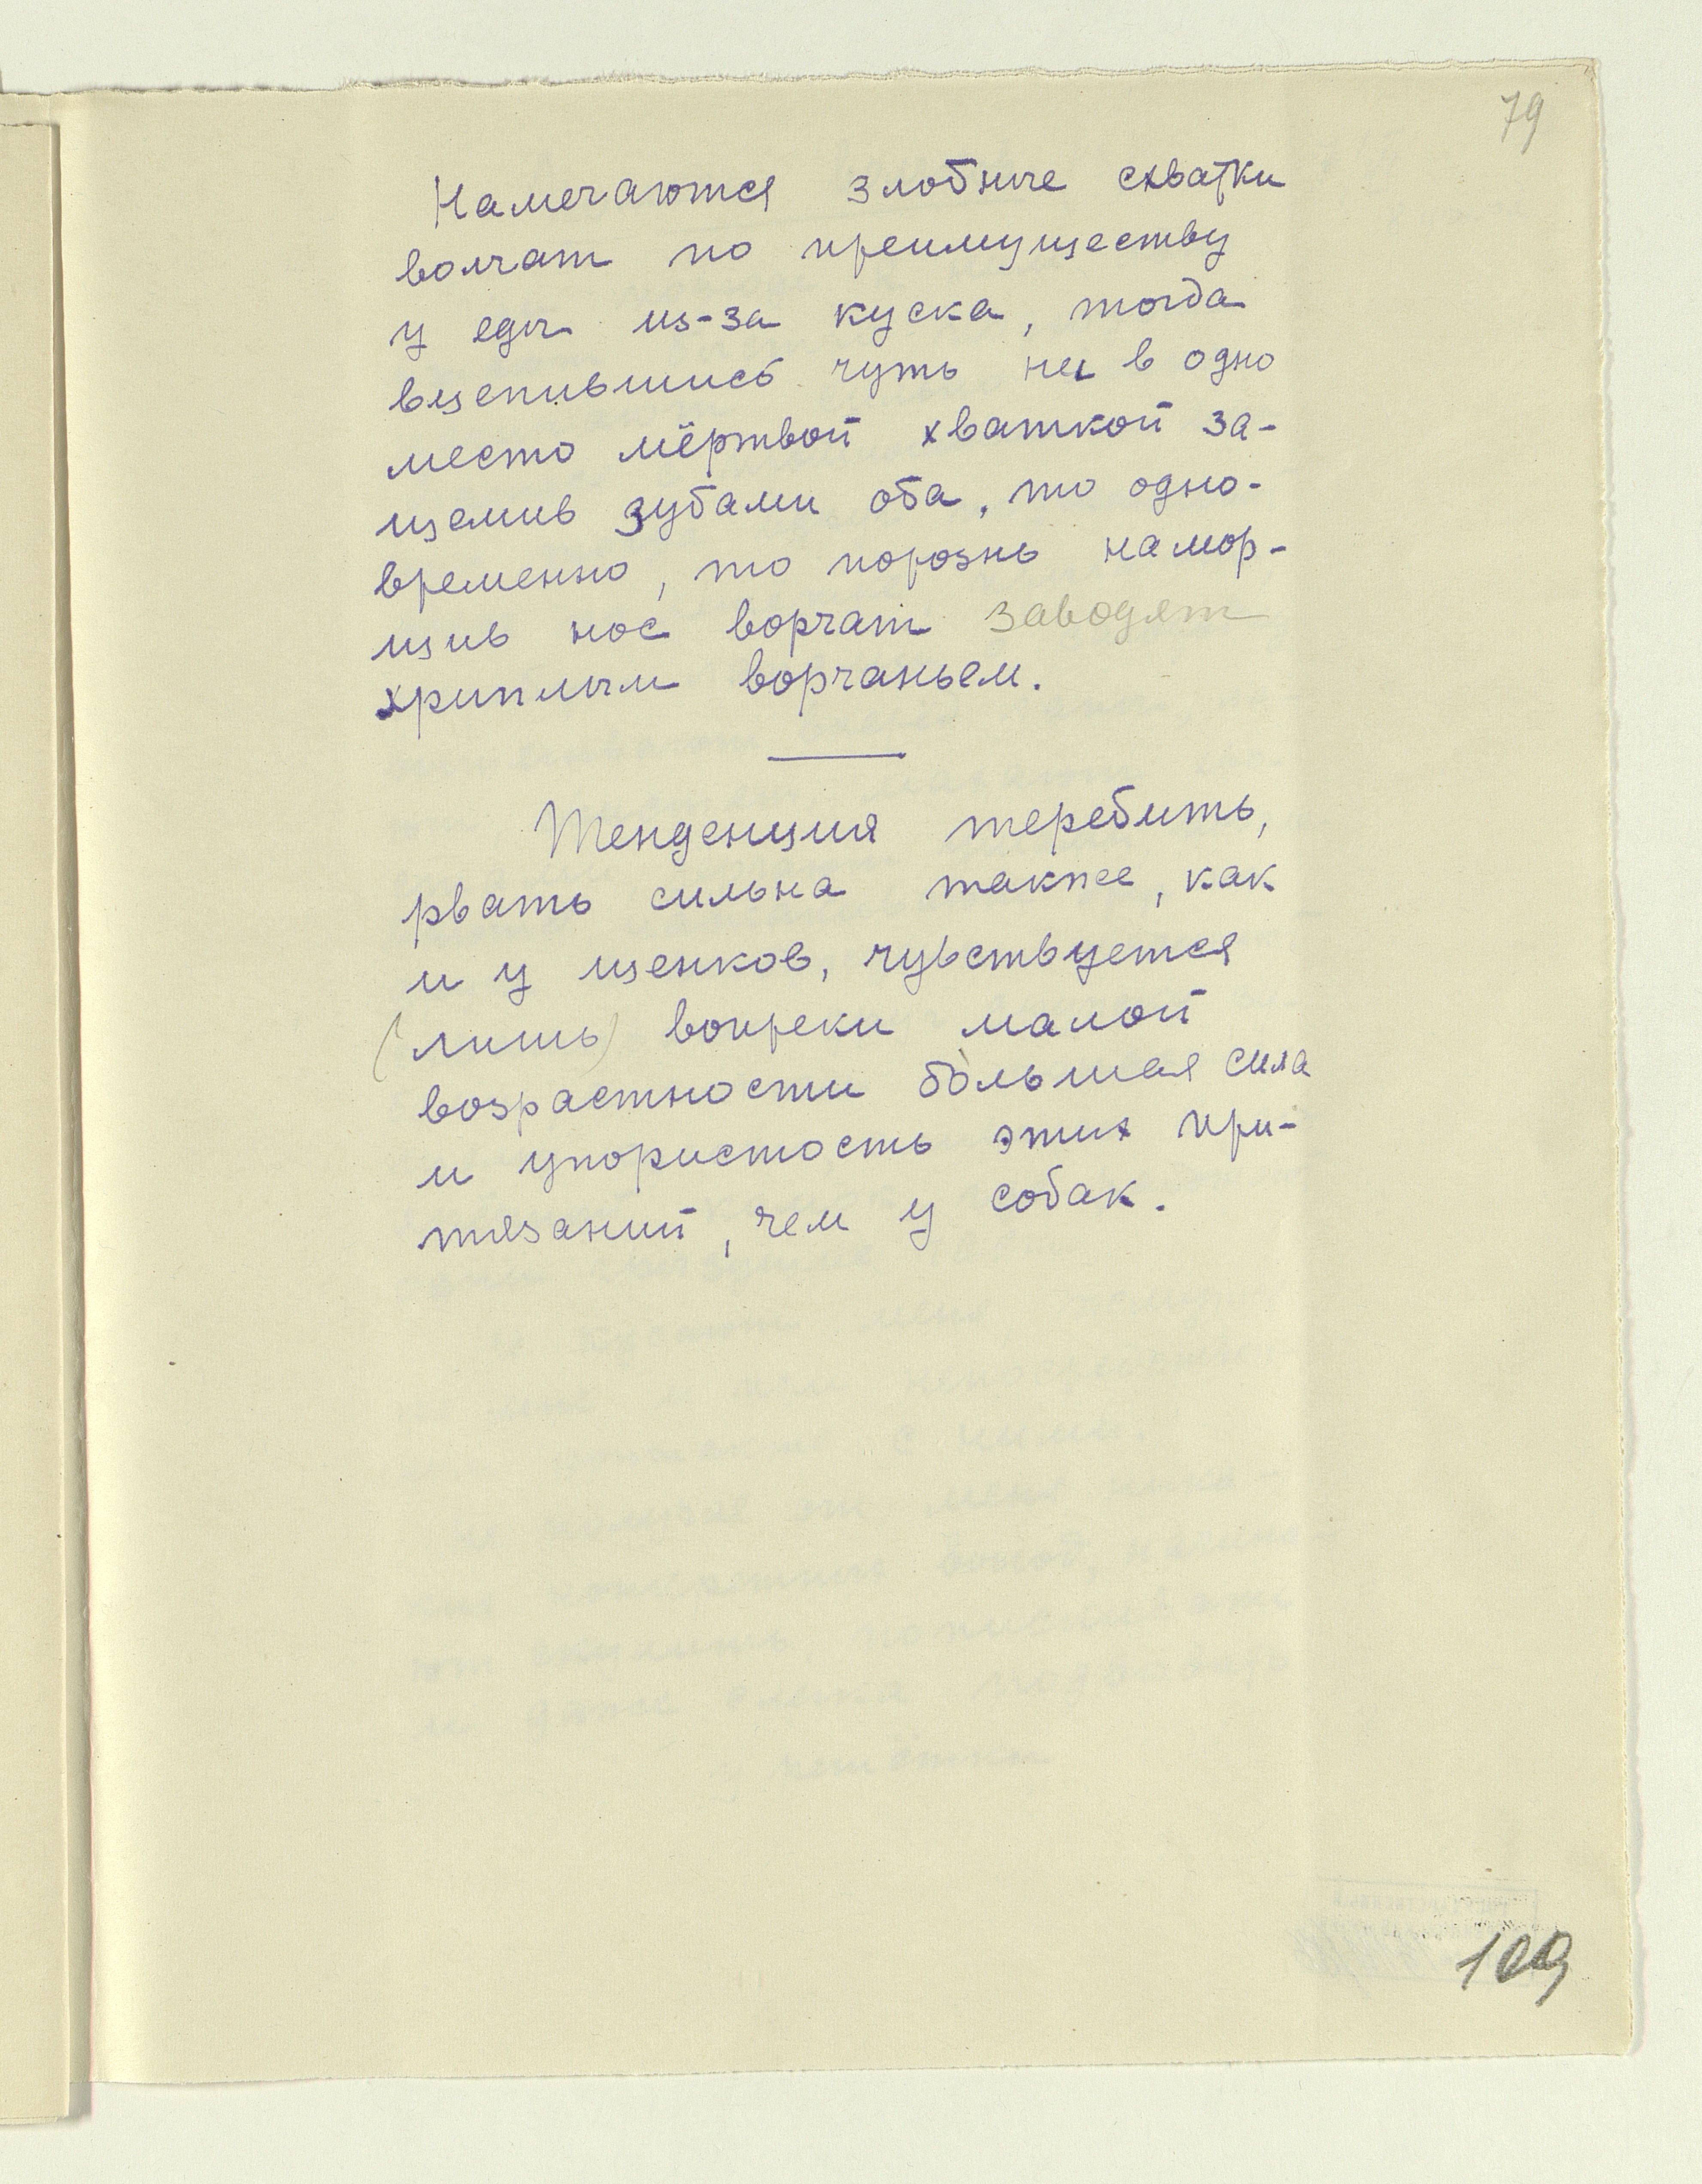 79
Намечаются злобные схватки
волчат по преимуществу
у еды из-за куска, тогда
вцепившись чуть не в одно
место мёртвой хваткой за-
щемив зубами оба, то одно-
временно, то порознь намор-
щив нос ворчат заводят
хриплым ворчаньем.
Тенденция теребить,
рвать сильна также, как
и у щенков, чувствуется
(лишь) вопреки малой
возрастности бо́льшая сила
и упористость этих при-
тязаний, чем у собак.
109